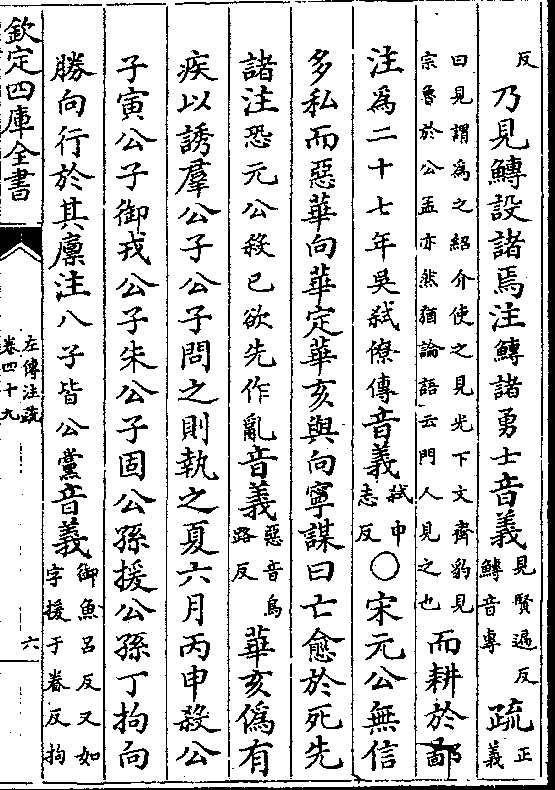 反
乃見鱄設諸焉注鱄諸勇士音義
見賢遍反
鱄音專
疏
正
義
曰見謂為之紹介使之見光下文齊豹見
宗魯於公孟亦然猶論語云門人見之也
而耕於鄙
注為二十七年吳弑僚傳音義
弑申
志反
〇宋元公無信
多私而惡華向華定華亥與向寧謀曰亡愈於死先
諸注恐元公殺已欲先作亂音義
惡音烏
路反
華亥偽有
疾以誘羣公子公子問之則執之夏六月丙申殺公
子寅公子御戎公子朱公子固公孫援公孫丁拘向
勝向行於其廩注八子皆公黨音義
御魚呂反又如
字援于眷反拘
欽定四庫全書
左傳注疏
卷四十九
六